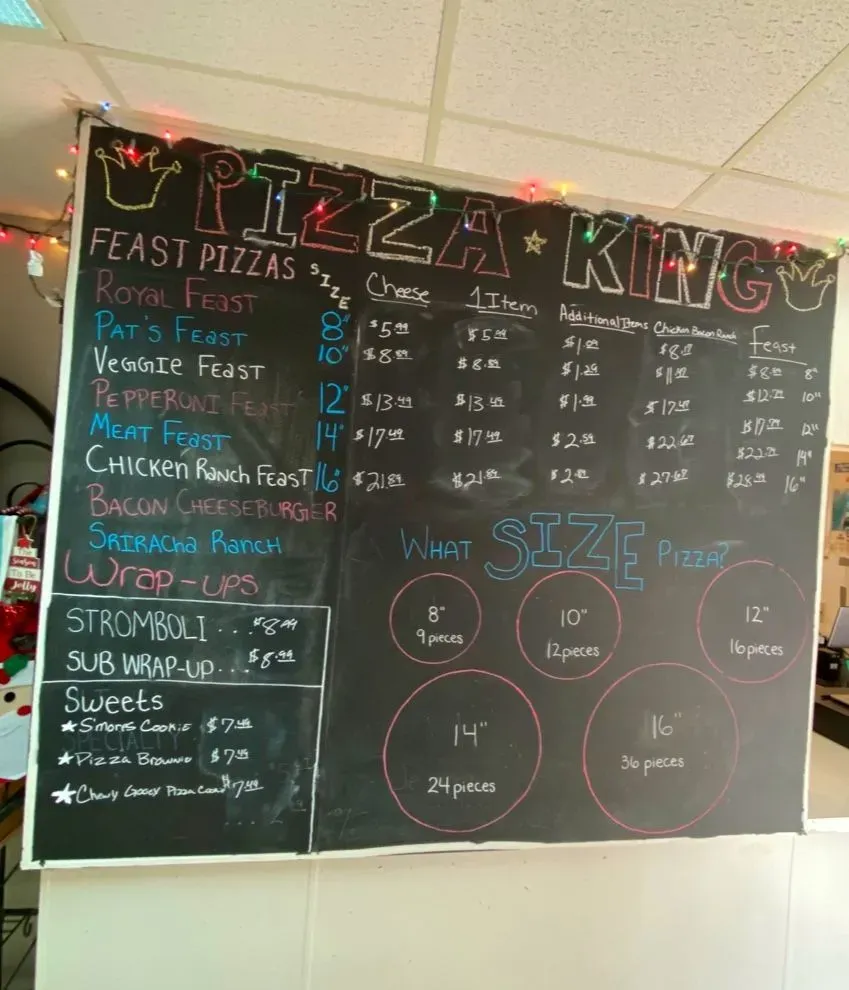 PIZZA KING
FEAST PIZZAS
SIZE
Cheese
1 Item
Additional Items
Chicken Bacon Ranch
Feast
ROYAL FEAST
PAT'S FEAST
VEGGIE FEAST
PEPPERONI FEAST
MEAT FEAST
CHICKEN RANCH FEAST
BACON CHEESEBURGER
SRIRACHA RANCH
8" $5.99 $5.99 $8" 
10" $8.89 $8.89 $1.29 10"
12" $13.49 $13.49 $1.99 $17.47 12"
14" $17.49 $17.49 $2.59 $22.67 14"
16" $21.89 $21.89 $27.67 16"
Wrap-ups
STROMBOLI ... $8.99
SUB WRAP-UP ... $8.99
Sweets
S'mores Cookie $7.49
Pizza Brownie $7.49
Chewy Gooey Pizza Cookie $7.49
SPECIALTY
WHAT SIZE PIZZA?
8"
9 pieces
10"
12 pieces
12"
16 pieces
14"
24 pieces
16"
36 pieces
Season
To Be
Jolly